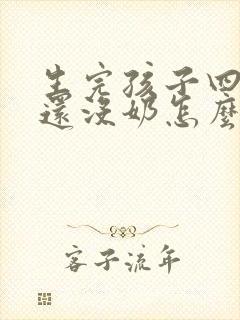 生完孩子四
還沒奶怎麼
客子流年